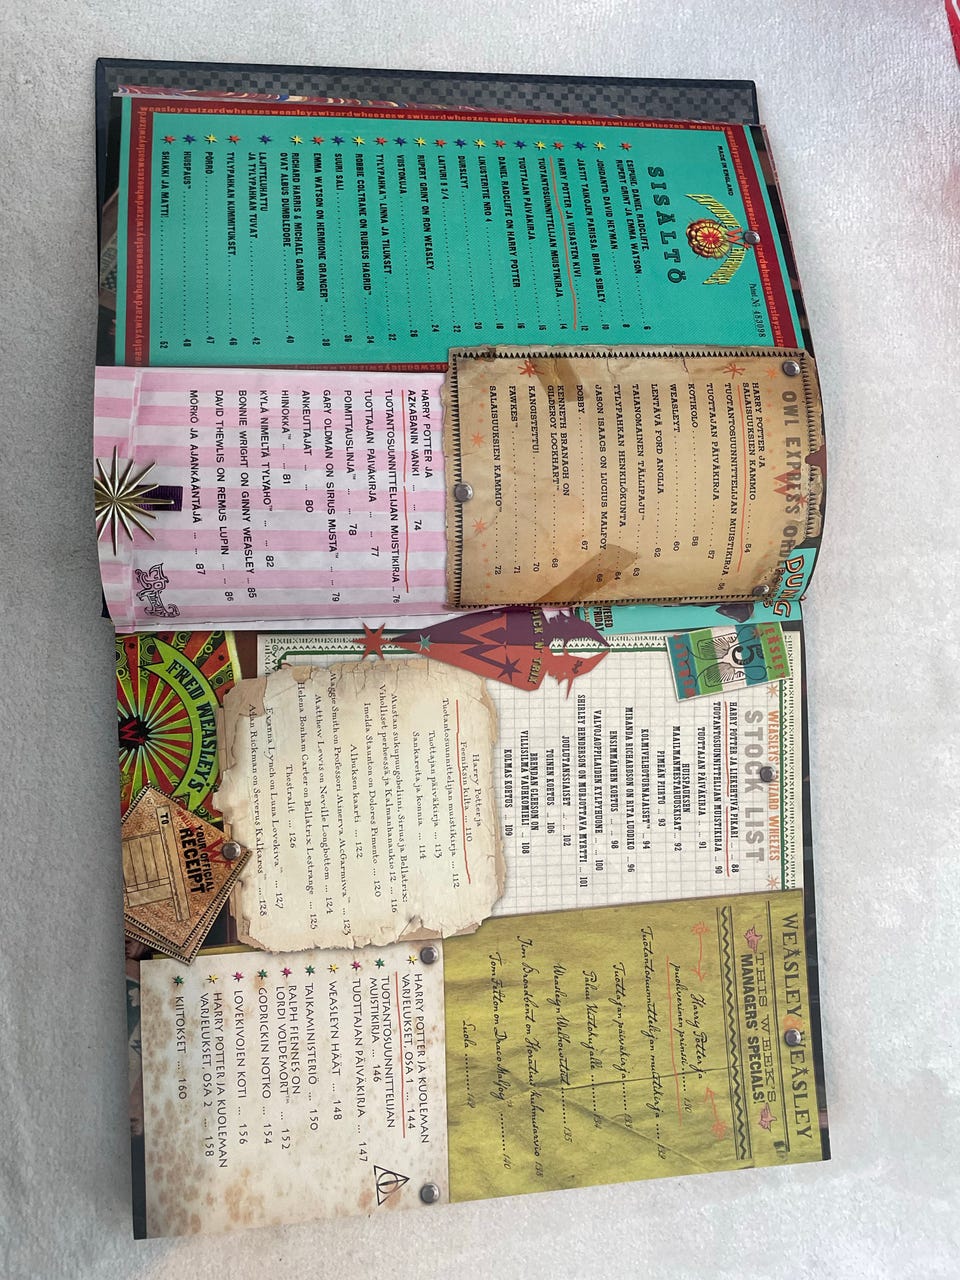 weasleyswizardwheezes weasleyswizardwheezes
MADE IN ENGLAND
Patent No 483098
SISÄLTÖ
ESIPUHE, DANIEL RADCLIFFE,
RUPERT GRINT JA EMMA WATSON 6
JOHDANTO, DAVID HEYMAN 8
JÄSTIT TAIKOJEN PARISSA, BRIAN SIBLEY 10
HARRY POTTER JA VIISASTEN KIVI 12
TUOTANTOSUUNNITTELIJAN MUISTIKIRJA 14
TUOTTAJAN PÄIVÄKIRJA 15
DANIEL RADCLIFFE ON HARRY POTTER 16
LIKUSTERITIE NRO 4 18
DURSLEYT 20
LAITURI 9 3/4 22
RUPERT GRINT ON RON WEASLEY 24
VIISTOKUJA 26
TYLYPAHKA™: LINNA JA TILUKSET 32
ROBBIE COLTRANE ON RUBEUS HAGRID™ 34
SUURI SALI 36
EMMA WATSON ON HERMIONE GRANGER™ 38
RICHARD HARRIS & MICHAEL GAMBON
OVAT ALBUS DUMBLEDORE 40
LAJITTELUHATTU
JA TYLYPAHKAN TUVAT 42
TYLYPAHKAN KUMMITUKSET 46
PÖRRÖ 47
HUISPAUS™ 48
SHAKKI JA MATTI 52
OWL EXPRESS ORDER
HARRY POTTER JA
SALAISUUKSIEN KAMMIO 54
TUOTANTOSUUNNITTELIJAN MUISTIKIRJA 56
TUOTTAJAN PÄIVÄKIRJA 57
KOTIKOLO 58
WEASLEYT 60
LENTÄVÄ FORD ANGLIA 62
TAIANOMAINEN TÄLLIPAJU™ 63
TYLYPAHKAN HENKILÖKUNTA 64
JASON ISAACS ON LUCIUS MALFOY 66
DOBBY 67
KENNETH BRANAGH ON
GILDEROY LOCKHART™ 68
KANGISTETTU! 70
FAWKES™ 71
SALAISUUKSIEN KAMMIO™ 72
HARRY POTTER JA
AZKABANIN VANKI ... 74
TUOTANTOSUUNNITTELIJAN MUISTIKIRJA ... 76
TUOTTAJAN PÄIVÄKIRJA ... 77
POIMITTAUSLINJA™ ... 78
GARY OLDMAN ON SIRIUS MUSTA™ ... 79
ANKEUTTAJAT ... 80
HIINOKKA™ ... 81
KYLÄ NIMELTÄ TYLYAHO™ ... 82
BONNIE WRIGHT ON GINNY WEASLEY ... 85
DAVID THEWLIS ON REMUS LUPIN ... 86
MÖRKÖ JA AJANKÄÄNTÄJÄ ... 87
DUNG
PICK 'N' TRIX
50
WEASLEYS' WIZARD WHEEZES
STOCK LIST
HARRY POTTER JA LIEKEHTIVÄ PIKARI ... 88
TUOTANTOSUUNNITTELIJAN MUISTIKIRJA ... 90
TUOTTAJAN PÄIVÄKIRJA ... 91
HUISPAUKSEN
MAAILMANMESTARUUSKISAT ... 92
PIMEÄN PIIRTO ... 93
KOLMIVELHOTURNAJAISET™ ... 94
MIRANDA RICHARDSON ON RITA LUODIKO ... 96
ENSIMMÄINEN KOETUS ... 98
VALVOJAOPPILAIDEN KYLPYHUONE ... 100
SHIRLEY HENDERSON ON MURJOTTAVA MYRTTI ... 101
JOULUTANSSIAISET ... 102
TOINEN KOETUS ... 106
BRENDAN GLEESON ON
VILLISILMÄ VAUHKOMIELI ... 108
KOLMAS KOETUS ... 109
Harry Potter ja
Feeniksin kilta ... 110
Tuotantosuunnittelijan muistikirja ... 112
Tuottajan päiväkirja ... 113
Sankareita ja konnia ... 114
Mustan sukupuugobeliini, Sirius ja Bellatrix:
Viholliset perheessä ja Kalmanhanaukio 12 ... 116
Imelda Staunton on Dolores Pimento ... 120
Albuksen kaarti ... 122
Maggie Smith on Professori Minerva McGarmiwa™ ... 123
Matthew Lewis on Neville Longbottom ... 124
Helena Bonham Carter on Bellatrix Lestrange ... 125
Thestralit ... 126
Evanna Lynch on Luna Lovekiva™ ... 127
Alan Rickman on Severus Kalkaros™ ... 128
FRED WEASLEY'S
YOUR OFFICIAL
RECEIPT
TO
WEASLEY WEASLEY
THIS WEEK'S
MANAGERS' SPECIALS!
Harry Potter ja
puoliverinen prinssi ... 130
Tuotantosuunnittelijan muistikirja ... 132
Tuottajan päiväkirja ... 133
Paluu Viistokujalle ... 134
Weasleyn Welhowitsit ... 135
Jim Broadbent on Horatius Kuhnusarvio 138
Tom Felton on Draco Malfoy™ ... 140
Luola ... 142
HARRY POTTER JA KUOLEMAN
VARJELUKSET, OSA 1 ... 144
TUOTANTOSUUNNITTELIJAN
MUISTIKIRJA ... 146
TUOTTAJAN PÄIVÄKIRJA ... 147
WEASLEYN HÄÄT ... 148
TAIKAMINISTERIÖ ... 150
RALPH FIENNES ON
LORDI VOLDEMORT™ ... 152
GODRICKIN NOTKO ... 154
LOVEKIVOJEN KOTI ... 156
HARRY POTTER JA KUOLEMAN
VARJELUKSET, OSA 2 ... 158
KIITOKSET ... 160